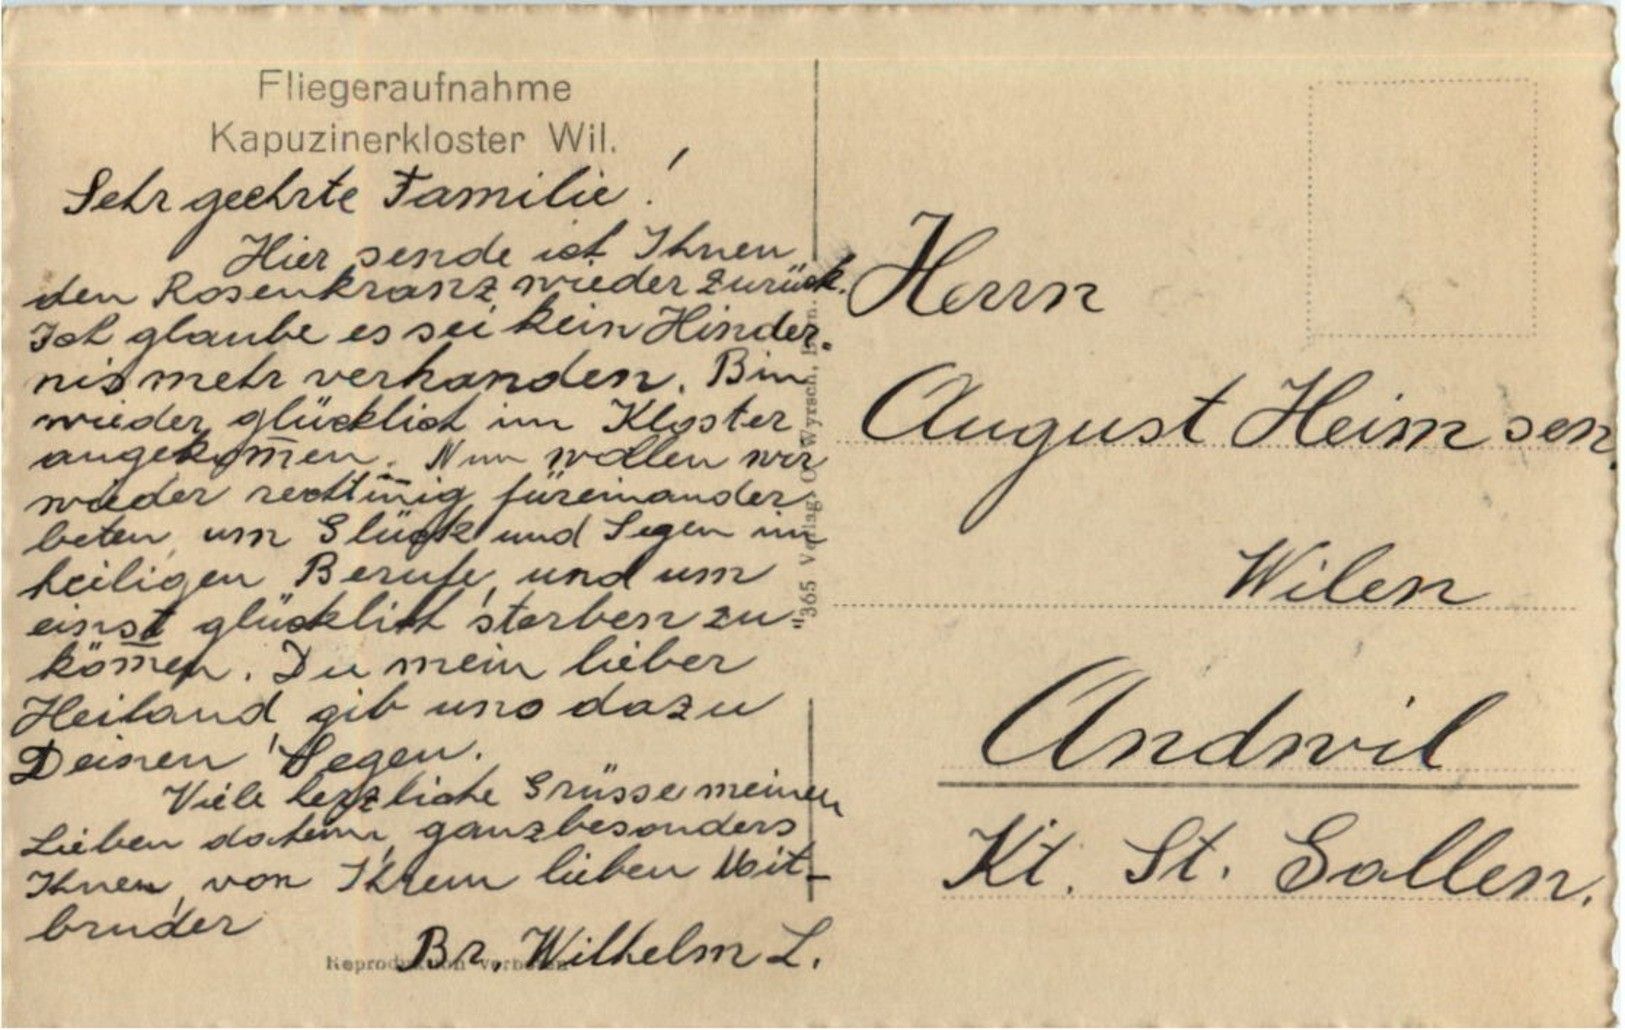 Fliegeraufnahme
Kapuzinerkloster Wil.
Sehr geehrte Familie!
Hier sende ich Ihnen
den Rosenkranz wieder zurück.
Ich glaube es sei kein Hinder-
nis mehr verhanden. Bin
wieder glücklich im Kloster
angekom̅en. Nun wollen wir
wieder füreinander
beten, um Glück und Segen im
heiligen Berufe, und um
einst glücklich sterben zu
köm̅en. Du mein lieber
Heiland, gib uns dazu
Deinen Segen.
Viele herzliche Grüsse meinen
Lieben daheim, ganzbesonders
Ihnen, von Ihrem lieben Mit-
bruder
Br. Wilhelm L.
Reproduktion verboten
365 Verlag: O. Wyrsch,
Herrn
August Heim sen.
Wilen
Andwil
Kt. St. Gallen.